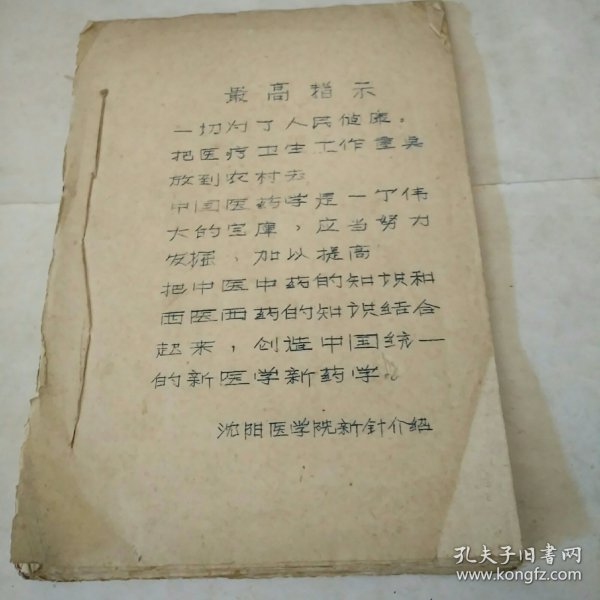 最高指示
一切为了人民健康。
把医疗卫生工作重点
放到农村去
中国医药学是一个伟
大的宝库，应当努力
发掘，加以提高
把中医中药的知识和
西医西药的知识结合
起来，创造中国统一
的新医学新药学。
沈阳医学院新针介绍
孔夫子旧书网
www.kongfz.com